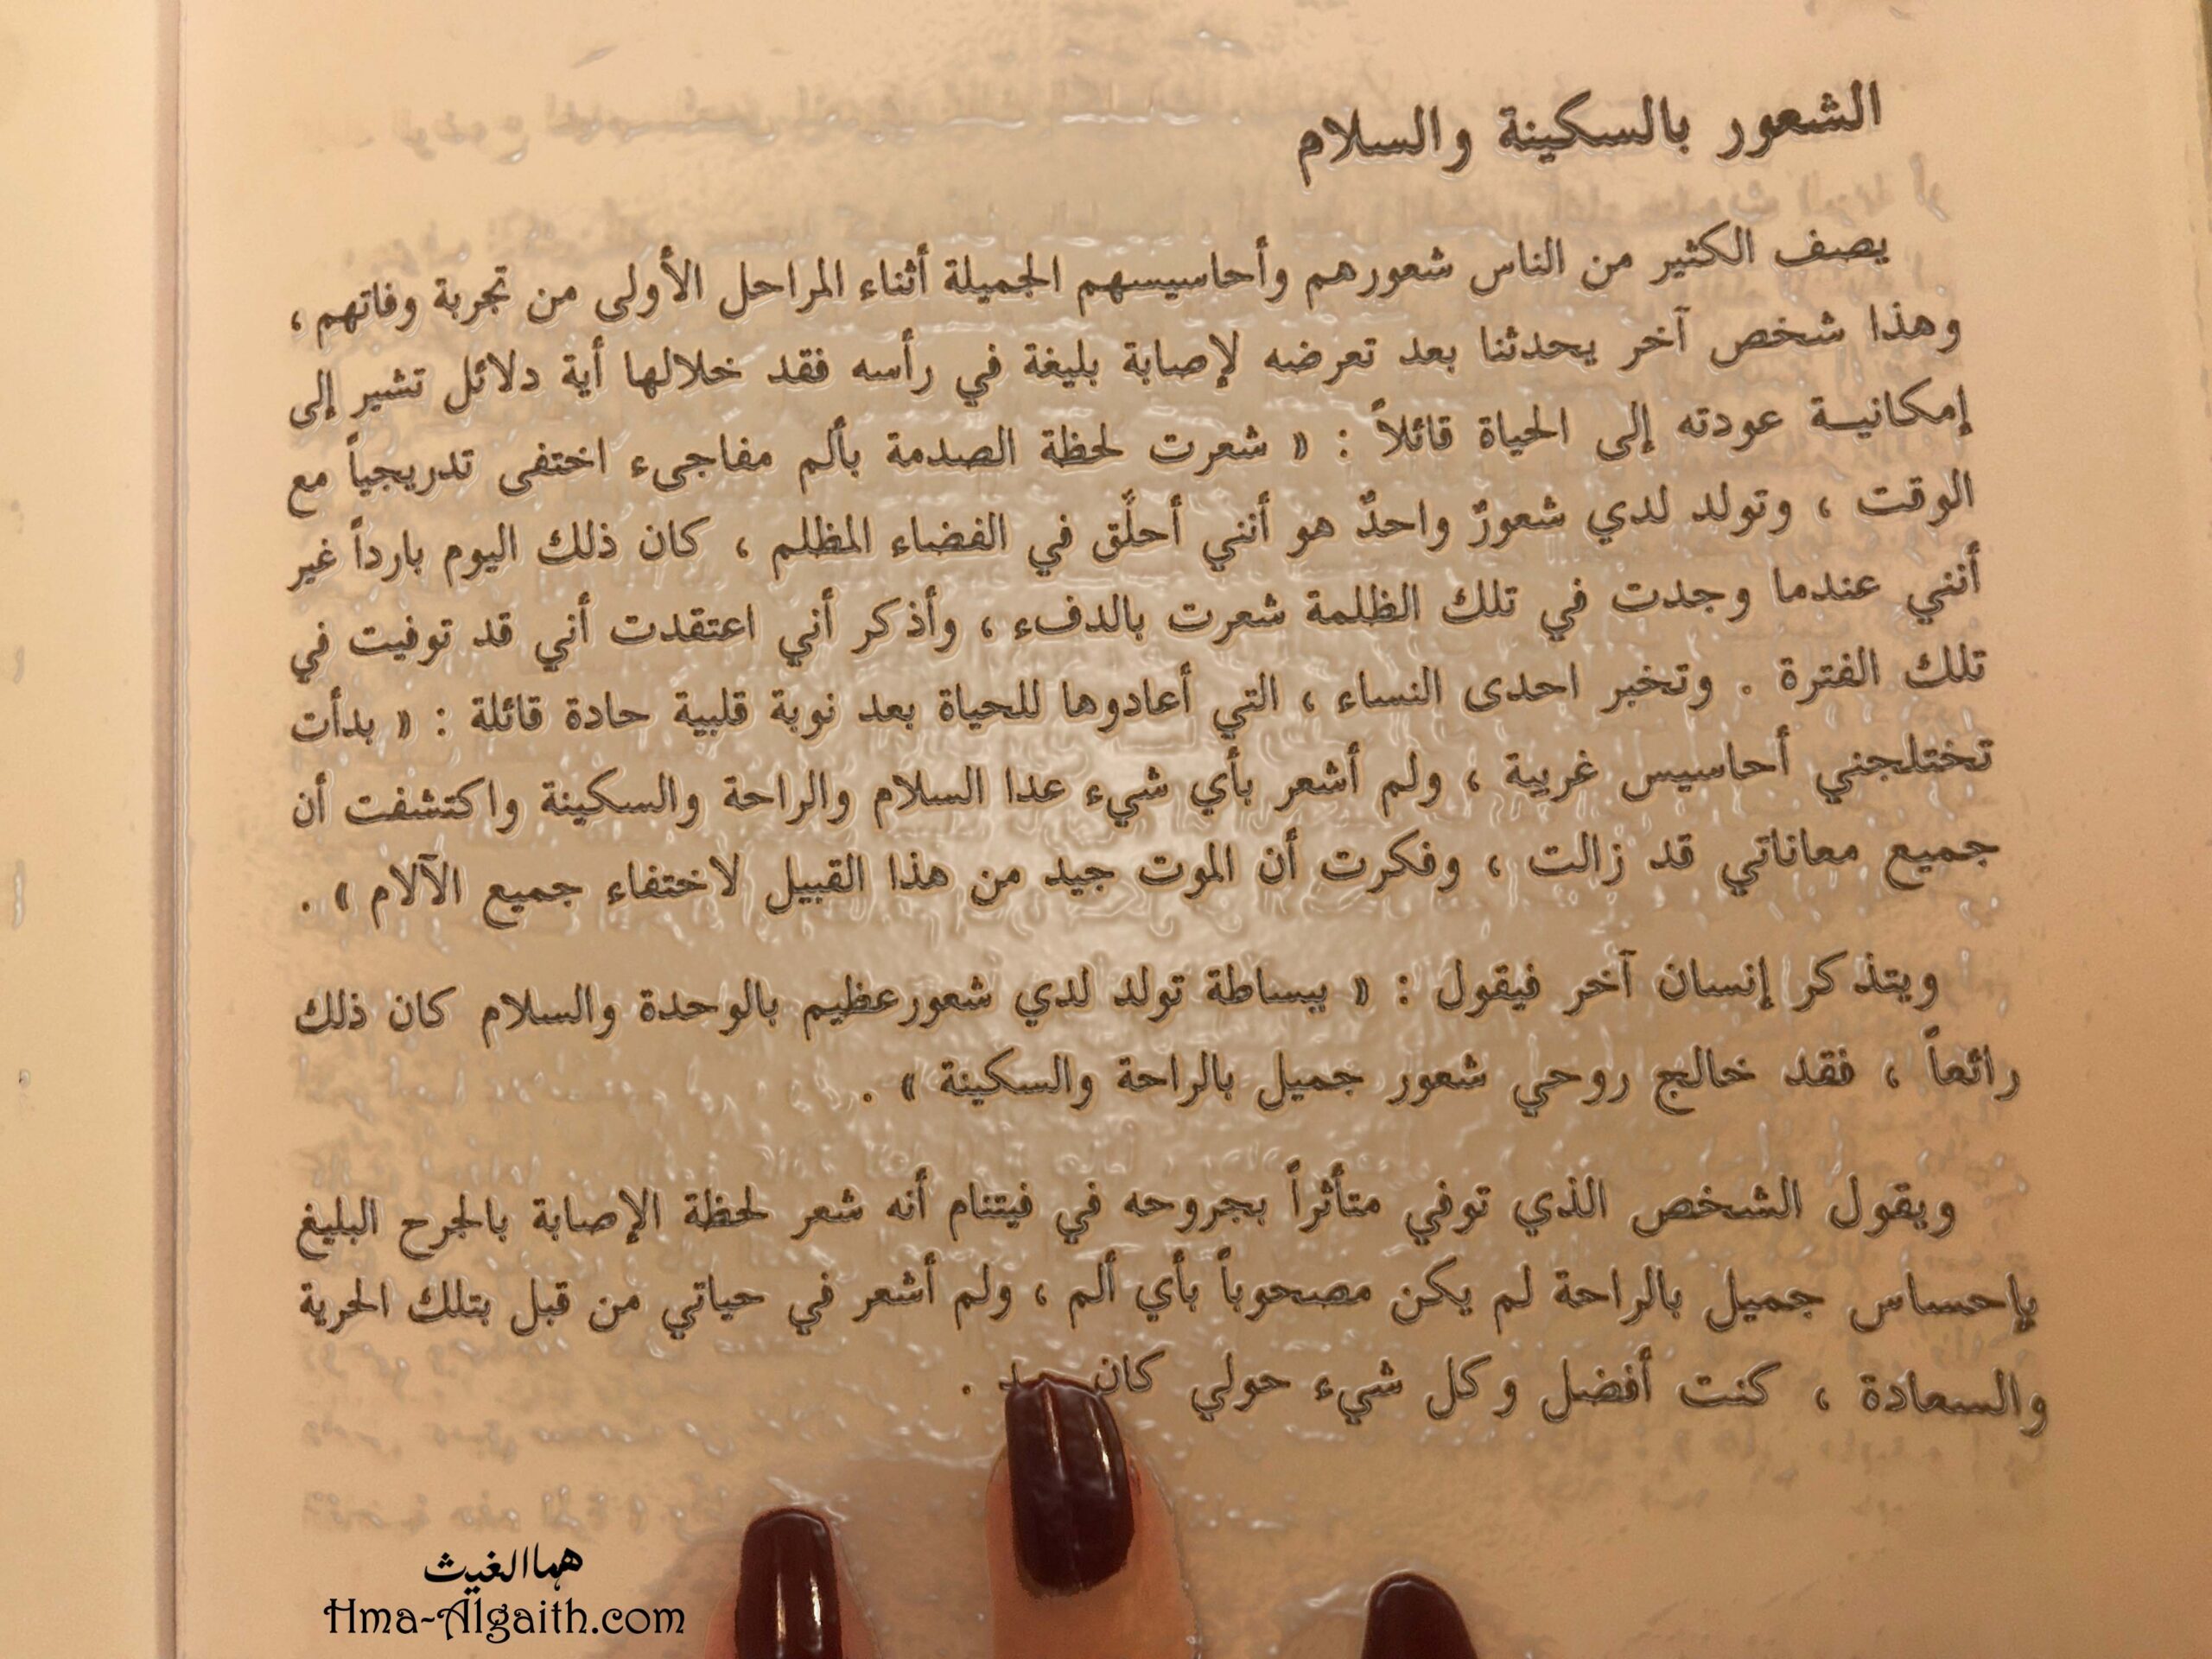 الشعور بالسكينة والسلام
يصف الكثير من الناس شعورهم وأحاسيسهم الجميلة أثناء المراحل الأولى من تجربة وفاتهم ،
وهذا شخص آخر يحدثنا بعد تعرضه لإصابة بليغة في رأسه فقد خلالها أية دلائل تشير إلى
إمكانيـة عودته إلى الحياة قائلاً : « شعرت لحظة الصدمة بألم مفاجىء اختفى تدريجياً مع
الوقت ، وتولد لدي شعورٌ واحدٌ هو أنني أحلّق في الفضاء المظلم ، كان ذلك اليوم بارداً غير
أنني عندما وجدت في تلك الظلمة شعرت بالدفء ، وأذكر أني اعتقدت أني قد توفيت في
تلك الفترة . وتخبر احدى النساء ، التي أعادوها للحياة بعد نوبة قلبية حادة قائلة : « بدأت
تختلجني أحاسيس غريبة ، ولم أشعر بأي شيء عدا السلام والراحة والسكينة واكتشفت أن
جميع معاناتي قد زالت ، وفكرت أن الموت جيد من هذا القبيل لاختفاء جميع الآلام » .
ويتذكر إنسان آخر فيقول : « ببساطة تولد لدي شعورعظيم بالوحدة والسلام كان ذلك
رائعاً ، فقد خالج روحي شعور جميل بالراحة والسكينة » .
ويقول الشخص الذي توفي متأثراً بجروحه في فيتنام أنه شعر لحظة الإصابة بالجرح البليغ
بإحساس جميل بالراحة لم يكن مصحوباً بأي ألم ، ولم أشعر في حياتي من قبل بتلك الحرية
والسعادة ، كنت أفضل وكل شيء حولي كان .
هما الغيث
Hma-Algaith.com